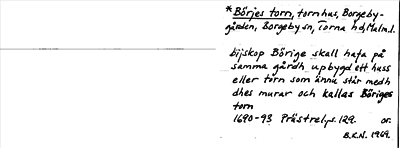 * Börjes torn, tornhus, Borgeby-
gården, Borgeby sn, Torna hd, Malm.l.
bijskop Börige skall hafa på
samma gårdh upbygd ett huss
eller torn som ännu står medh
dhes murar och kallas Böriges
torn
1690-93 Prästrel. s. 129. or.
B.E.N. 1969.